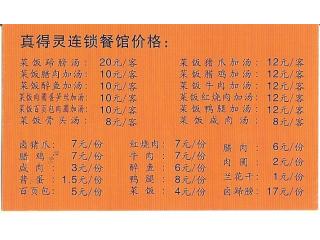 真得灵连锁餐馆价格：
菜饭蹄膀汤： 20元/客 菜饭猪爪加汤： 12元/客
菜饭腊肉加汤： 10元/客 菜饭腊鸡加汤： 12元/客
菜饭醉鱼加汤： 10元/客 菜饭牛肉加汤： 12元/客
10元/客 菜饭红烧肉加汤： 12元/客
10元/客 菜饭鸭腿加汤： 12元/客
菜饭骨头汤： 8元/客 菜饭咸肉汤： 8元/客
卤猪爪： 7元/份 红烧肉： 7元/份 腊肉： 6元/份
腊鸡： 7元/份 牛肉： 7元/份 肉圆： 2元/份
咸肉： 3元/份 醉鱼： 6元/份 兰花干： 1元/份
酱蛋： 1.5元/份 鸭腿： 8元/份 卤蹄膀： 17元/份
百页包： 5元/份 菜饭： 4元/份